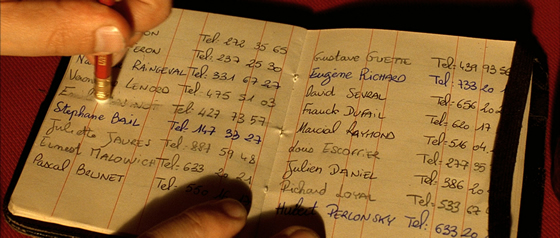 ON Tel: 272 35 65
ERON Tel: 237 25 30
RAINGEVAL Tel: 331 67 27
LENORD Tel: 475 51 03
Tel: 427 73 57
Stephane BAIL Tel: 147 39 27
Juliette JAURES Tel: 887 59 48
Ernest MALOWICH Tel: 633
Pascal BRUNET Tel:
Gustave Tel: 439 93
Eugene RICHARD Tel: 733 20
David SEVRAL Tel: 656 20
Franck DUFAIL Tel: 620 17
Marcel RAYMOND Tel: 516 04
Louis ESCOFFIER Tel: 277 55
Julien DANIEL Tel: 386 20
Richard LOYAL Tel: 533 67
Hubert PERLONSKY Tel: 633 20